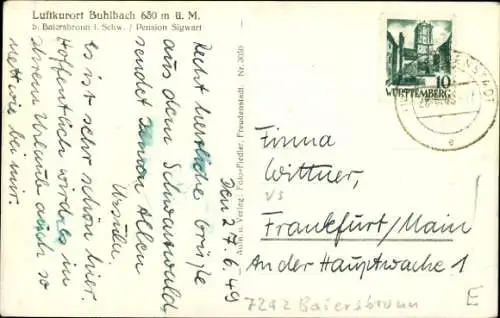 Luftkurort Buhlbach 680 m ü. M.
b. Baiersbronn i. Schw. / Pension Sigwart
Den 27.6.49
Recht herzliche Grüße
aus dem Schwarzwald,
sendet Ihnen Allen
Ursula
Es ist sehr schön hier.
Hoffentlich wird es in
Ihrem Urlaub auch so
nett wie bei mir.
Aufn. u. Verlag: Foto-Fiedler, Freudenstadt. Nr. 3050
10
WÜRTTEMBERG
Firma
Wittner,
Frankfurt/Main
An der Hauptwache 1
7292 Baiersbronn
E